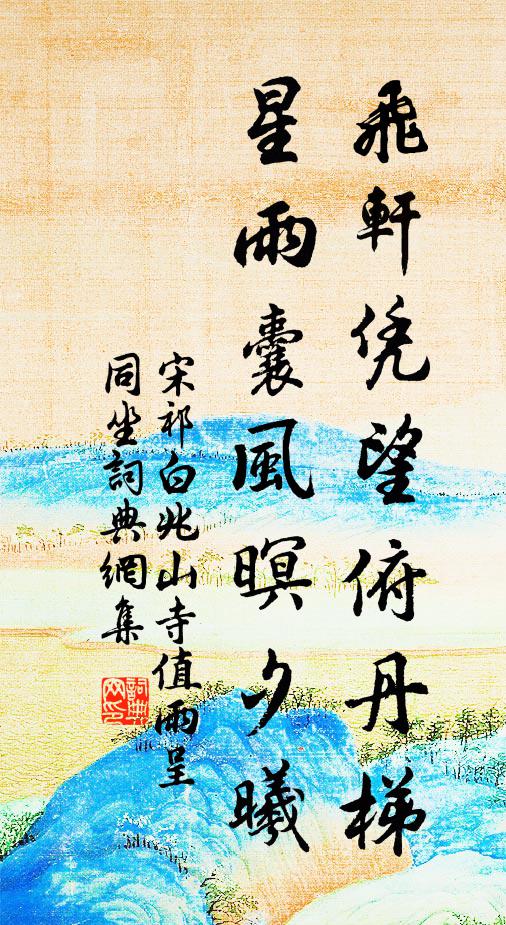 飛軒凭望俯丹梯
星雨囊風暝夕曦
宋祁白兆山寺值雨呈
同坐詞典網集
詞典網印